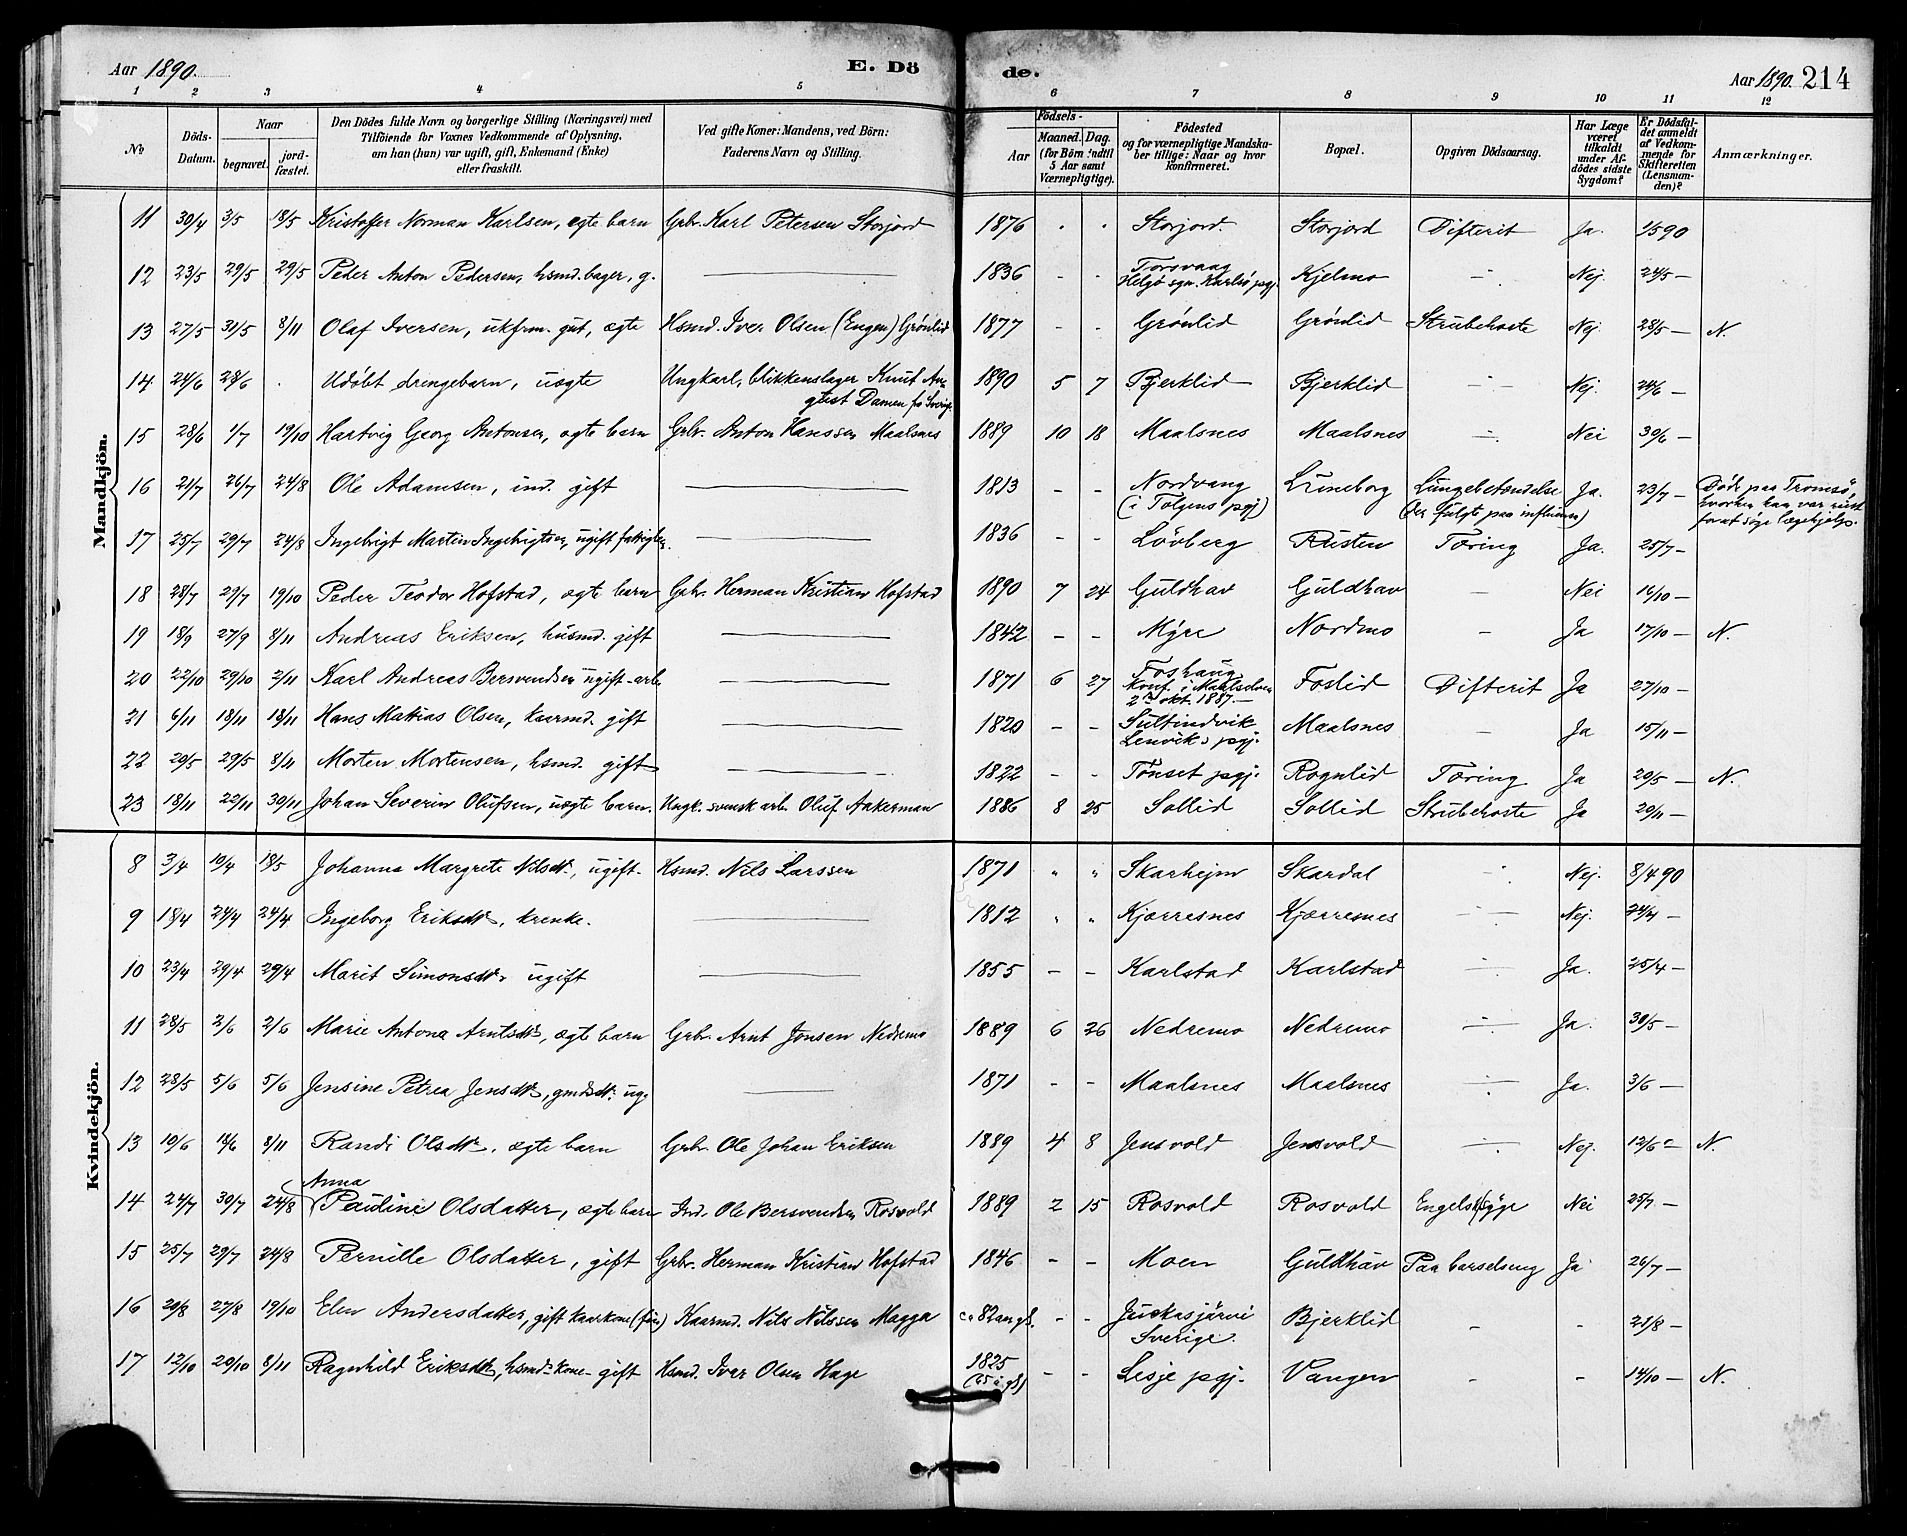 Aar 1890. E. Dö de. Aar 1890. 214
1 2 3 4 5 6 7 8 9 10 11 12
No
Döds-Datum.
Naar
begravet.
jord-fæstet.
Den Dödes fulde Navn og borgerlige Stilling (Næringsvei) med
Tilföiende for Voxnes Vedkommende af Oplysning,
om han (hun) var ugift, gift, Enkemand (Enke)
eller fraskilt.
Ved gifte Koner: Mandens, ved Börn:
Faderens Navn og Stilling.
Födsels-
Aar
Maaned. Dag.
(for Börn indtil
5 Aar samt
Værnepligtige).
Födested
og for værnepligtige Mandska-
ber tillige: Naar og hvor
konfirmeret.
Bopæl.
Opgiven Dödsaarsag.
Har Læge
været
tilkaldt
under Af-
dödes sidste
Sygdom?
Er Dödsfal-
det anmeldt
af Vedkom-
mende for
Skifteretten
(Lensman-
den)?
Anmærkninger.
Mandkjön.
11 30/4 3/5 18/5 Kristoffer Norman Karlsen, ægte barn Grbr. Karl Petersen Storjord 1876 Storjord. Storjord Difterit Ja. 1/5 90
12 23/5 29/5 29/5 Peder Anton Pedersen, hsmd. bager, g. — 1836 - - Torsvaag Helgø sgn. Karlsø pgj. Kjelmo - Nej. 24/5 —
13 27/5 31/5 8/11 Olaf Iversen, ukfrm. gut, ægte Hsmd. Iver Olsen (Engen) Grönlid 1877 - - Grönlid Grönlid Strubehoste Nej 28/5 — N.
14 24/6 28/6 . Udöbt drengebarn, uægte Ungkarl, blikkenslager Knut An-
gtist Damen fra Sverige 1890 5 7 Bjerklid Bjerklid - Nej. 24/6 —
15 28/6 1/7 19/10 Hartvig Georg Antonsen, ægte barn Grbr. Anton Hanssen Maalsnes 1889 10 18 Maalsnes Maalsnes - Nei 30/6 —
16 21/7 26/7 24/8 Ole Adamsen, ind. gift — 1813 - - Nordvang (i Tolgens pgj) Luneborg Lungebetændelse (der fulgte paa influensa) Ja. 23/7 — Döde paa Tromsö, hvorhen han var reist for at söge lægehjelp.
17 25/7 29/7 24/8 Ingebrigt Martin Ingebrigtsen, ugift fattiglem. — 1836 - - Lövberg Rusten Tæring Ja. 25/7 —
18 28/7 29/7 19/10 Peder Teodor Hofstad, ægte barn Grbr. Herman Kristian Hofstad 1890 7 24 Guldhav Guldhav - Nei 16/10 —
19 18/9 27/9 8/11 Andreas Eriksen, husmd. gift — 1842 - - Myre Nordmo - Ja 17/10 — N.
20 22/10 29/10 2/11 Karl Andreas Bersvendsen ugift arb. — 1871 6 27 Foshaug Konf. i Maalselven 2den okt. 1887. — Foslid Difterit Ja 27/10 —
21 6/11 18/11 18/11 Hans Mattias Olsen, kaarmd. gift — 1820 - - Sultindvik Lenviks pgj. Maalsnes - Ja 15/11 —
22 20/5 29/5 8/11 Morten Mortensen, hsmd. gift — 1822 - - Tönset pgj. Rognlid Tæring Ja 20/5 — N.
23 18/11 22/11 30/11 Johan Severin Olufsen, uægte barn. Ungk. svensk arb. Oluf Aakerman 1886 8 25 Sollid Sollid Strubehoste Ja 20/11 —
Kvindekjön.
8 3/4 10/4 18/5 Johanna Margrete Nilsdtr., ugift. Hsmd. Nils Larssen 1871 " " Skarhejm Skardal - Nej. 8/4 90
9 18/4 24/4 24/4 Ingeborg Eriksdtr., — 1812 " " Kjærresnes Kjærresnes - Nej. 24/4 —
10 23/4 29/4 29/4 Marit Simonsdtr. ugift — 1855 - - Karlstad Karlstad - Ja. 25/4 —
11 28/5 2/6 2/6 Marie Antona Arntsdtr., ægte barn Grbr. Arnt Jonsen Nedremo 1889 6 26 Nedremo Nedremo - Ja. 30/5 —
12 28/5 5/6 5/6 Jensine Petrea Jensdtr., gmdsdtr. ug. — 1871 - - Maalsnes Maalsnes - Ja. 3/6 —
13 10/6 18/6 8/11 Randi Olsdtr., ægte barn Grbr. Ole Johan Eriksen 1889 4 8 Jensvold Jensvold - Nej. 12/6 — N.
14 24/7 30/7 24/8 Anna Pauline Olsdatter, ægte barn Ind. Ole Bersvendsen Rosvold 1889 2 15 Rosvold Rosvold Engelsk syge Nei 25/7 —
15 25/7 29/7 24/8 Pernille Olsdatter, gift Grbr. Herman Kristian Hofstad 1846 - - Moen Guldhav Paa barselseng Ja 26/7 —
16 20/8 27/8 19/10 Elen Andersdatter, gift kaarkone (fin) Kaarmd. Nils Nilssen Magga ca 82 aar gl. - - Juckasjärvi Sverige. Bjerklid - - 21/8 —
17 12/10 20/10 8/11 Ragnhild Eriksdtr, hsmds kone gift Hsmd. Iver Olsen Hage 1825 (65 å gl) - - Lesje pgj. Vangen - - 14/10 — N.